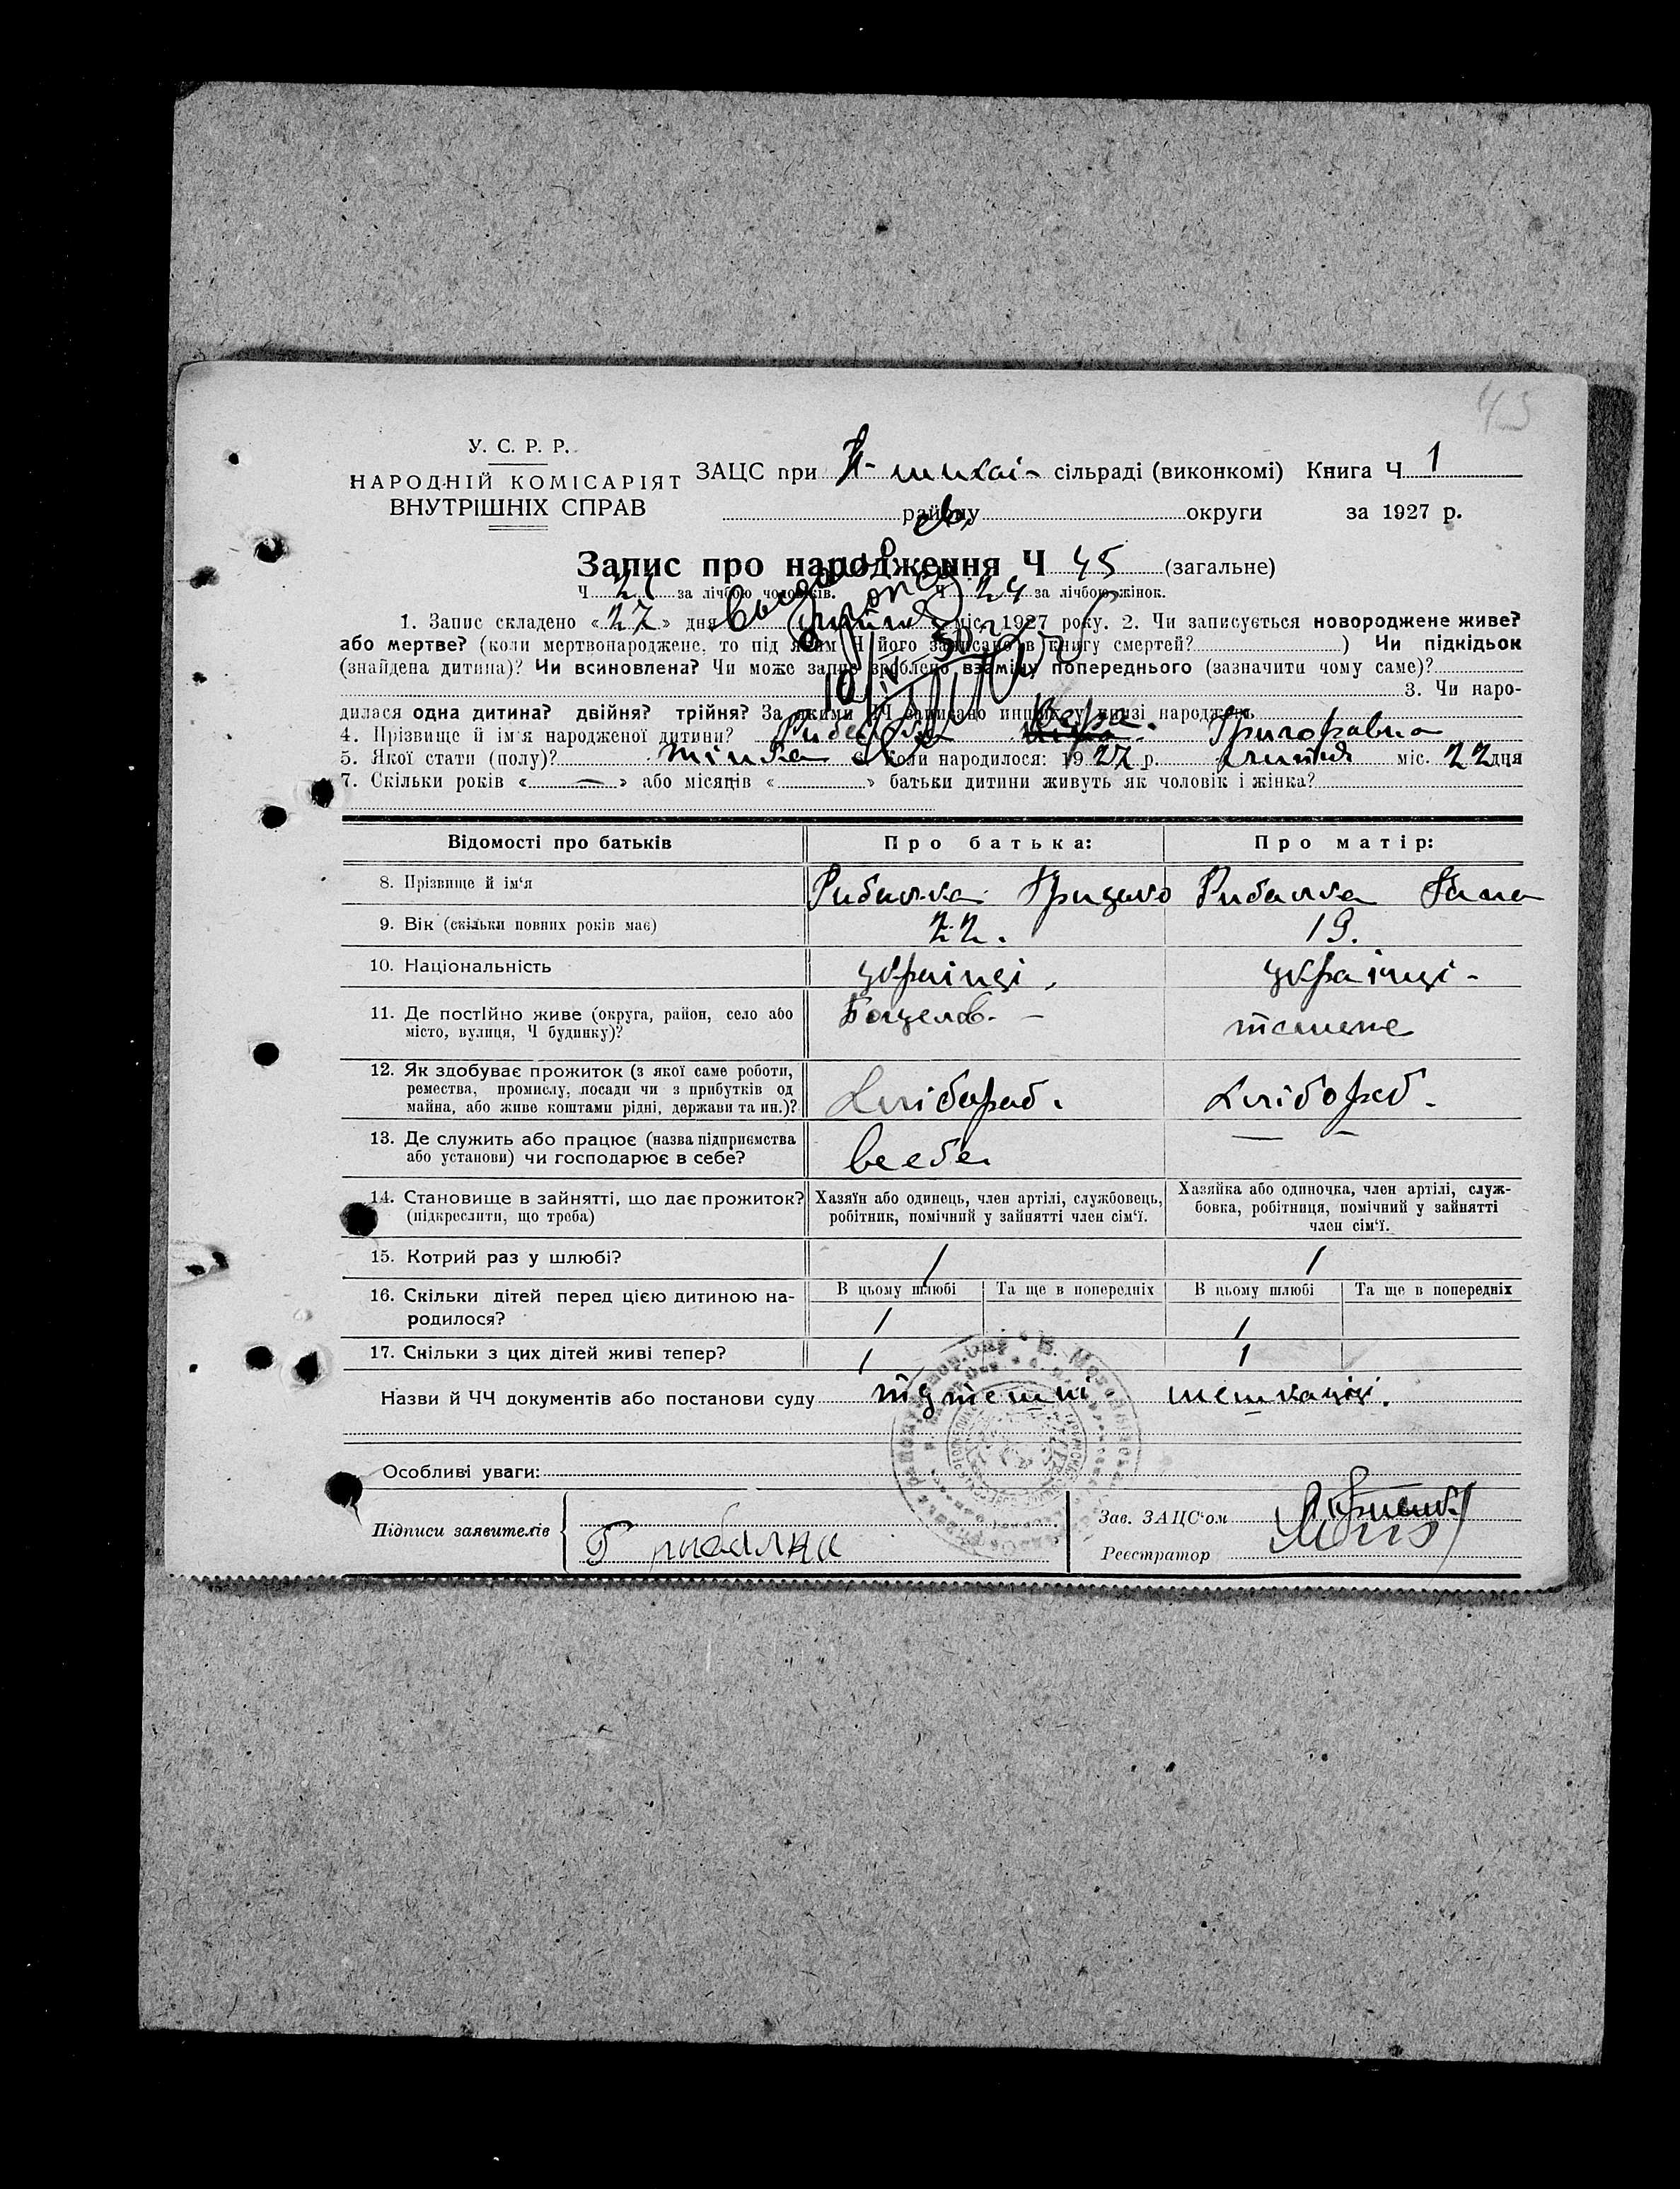 43
У. С. Р. Р.
НАРОДНІЙ КОМІСАРІЯТ
ВНУТРІШНІХ СПРАВ
ЗАЦС при сільраді (виконкомі) Книга Ч 1
району округи за 1927 р.
Запис про народження Ч 45 (загальне)
Ч 21 за лічбою чоловіків. Ч 24 за лічбою жінок.
1. Запис складено «27» дня міс. 1927 року. 2. Чи записується новороджене живе?
або мертве? (коли мертвонароджене, то під яким Ч його записано в книгу смертей? ) Чи підкідьок
(знайдена дитина)? Чи всиновлена? Чи може запис зроблено взаміну попереднього (зазначити чому саме)?
3. Чи наро-
дилася одна дитина? двійня? трійня? За якими ЧЧ записано инших у книзі народжень
4. Прізвище й ім'я народженої дитини? Рибалка Вера Григоровна
5. Якої стати (полу)? жінка 6. Коли народилося: 1927 р. липня міс. 22 дня
7. Скільки років « — » або місяців « » батьки дитини живуть як чоловік і жінка?
Відомості про батьків Про батька: Про матір:
8. Прізвище й ім'я Рибалка Грицько Рибалка Гана
9. Вік (скільки повних років має) 22. 19.
10. Національність українці. українці -
11. Де постійно живе (округа, район, село або
місто, вулиця, Ч будинку)?
12. Як здобуває прожиток (з якої саме роботи,
ремества, промислу, посади чи з прибутків од
майна, або живе коштами рідні, держави та ин.)? Хлібороб. Хлібороб.
13. Де служить або працює (назва підприємства
або установи) чи господарює в себе? в себе — -
14. Становище в зайнятті, що дає прожиток?
(підкреслити, що треба)
Хазяїн або одинець, член артілі, службовець,
робітник, помічний у зайнятті член сім'ї.
Хазяйка або одиночка, член артілі, служ-
бовка, робітниця, помічний у зайнятті
член сім'ї.
15. Котрий раз у шлюбі? 1 1
16. Скільки дітей перед цією дитиною на-
родилося?
В цьому шлюбі Та ще в попередніх В цьому шлюбі Та ще в попередніх
1 1
17. Скільки з цих дітей живі тепер? 1 1
Назви й ЧЧ документів або постанови суду тутешні мешканці.
Особливі уваги:
Підписи заявителів Г рибалка
Зав. ЗАЦС'ом
Реєстратор